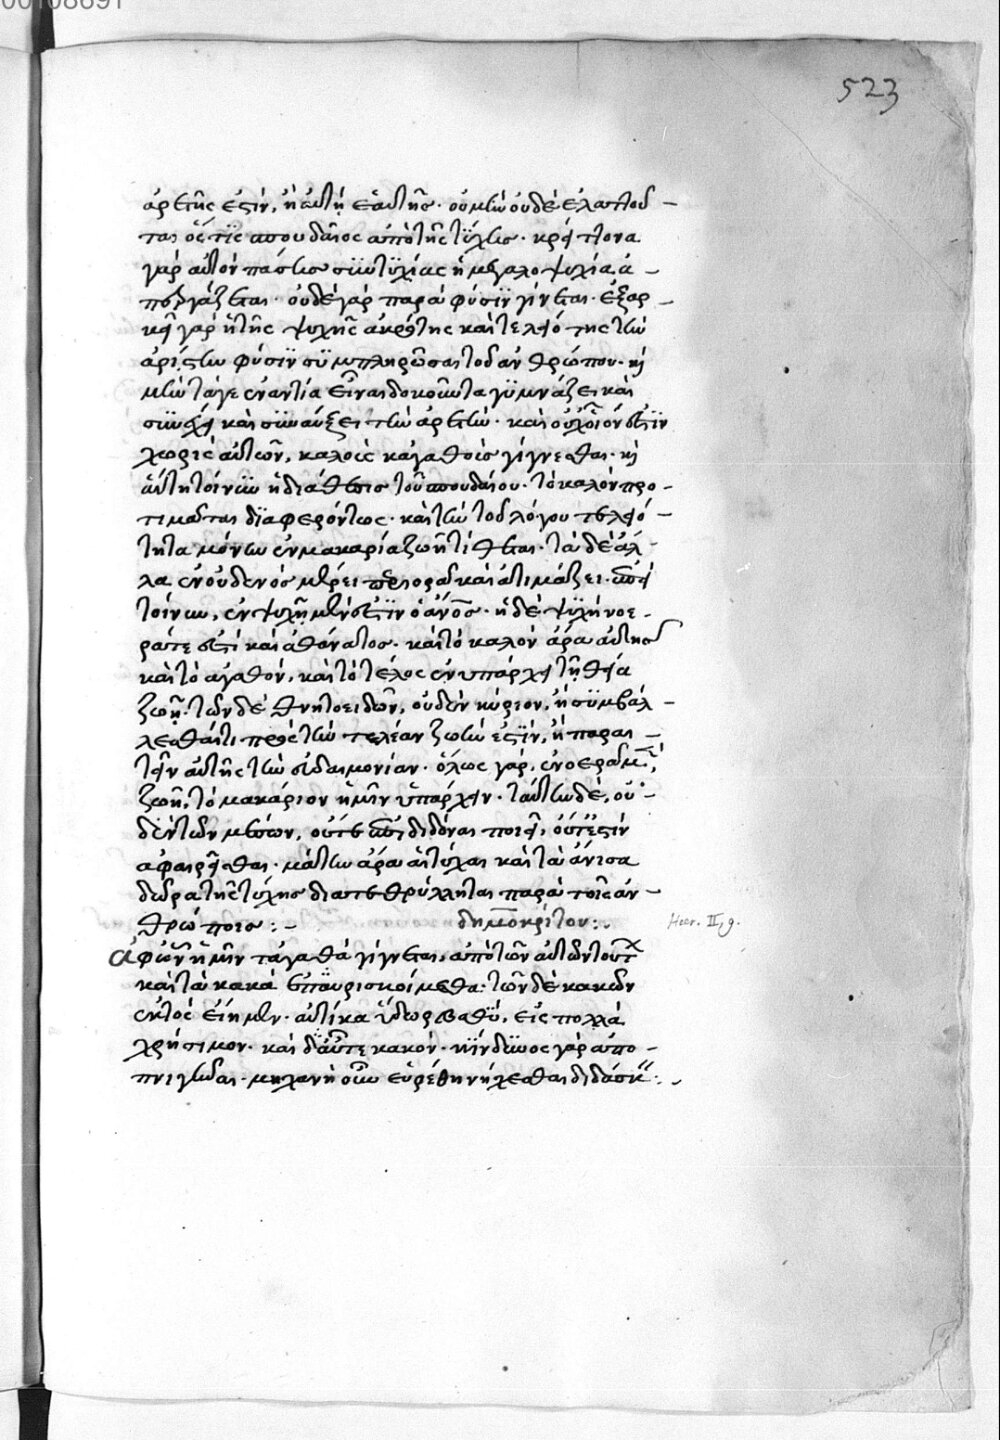 00108691
523
ἀρετῆς ἐστὶν, ἢ αὐτὴ ἑαυτῆς. οὐ μὴν οὐδὲ ἐλαττοῦ –
ται ὅστις σπουδαῖος ἀπὸ τῆς τύχης. κρείττονα
γὰρ αὐτὸν πάσης συντυχίας ἡ μεγαλοψυχία ἀ –
περγάζεται. οὐδὲ γὰρ παρὰ φύσιν γίνεται. ἐξαρ –
κεῖ γὰρ ἡ τῆς ψυχῆς ἀκρότης καὶ τελειότης τὴν
ἀρίστην φύσιν συμπληρῶσαι τοῦ ἀνθρώπου. καὶ
μὴν τά γε ἐναντία εἶναι δοκοῦντα γυμνάζει καὶ
συνέχει καὶ συναύξει τὴν ἀρετὴν. καὶ οὐχ οἷόν στὶν
χωρὶς αὐτῶν, καλοῖς κἀγαθοῖς γίγνεσθαι. καὶ
αὕτη τοίνυν ἡ διάθεσις τοῦ σπουδαίου. τὸ καλὸν προ –
τιμᾶται διαφερόντως. καὶ τὴν τοῦ λόγου τελειό –
τητα μόνην ἐν μακαρία ζωῆ τίθεται. τὰ δὲ ἄλ –
λα ἐν οὐδενὸς μέρει περιορᾶ καὶ ἀτιμάζει. ἐπεὶ
τοίνυν, ἐν ψυχῆ μέν στιν ὁ ἄνος. ἡ δὲ ψυχὴ νοε –
ρά τε στὶ καὶ ἀθάνατος. καὶ τὸ καλὸν ἄρα αὐτῆς
καὶ τὸ ἀγαθόν, καὶ τὸ τέλος ἐνυπάρχει τῆ θεία
ζωῆ. τῶν δὲ θνητοειδῶν, οὐδὲν κύριον, ἢ συμβάλ –
λεσθαί τι πρὸς τὴν τελέαν ζωὴν ἐστὶν, ἢ παραι –
τεῖν αὐτῆς τὴν εὐδαιμονίαν. ὅλως γάρ, ἐν οερᾶ μὲν
ζωῆ, τὸ μακάριον ἡμῖν ὑπάρχειν. ταύτην δὲ, οὐ –
δὲν τῶν μέσων, οὔτε ἐπιδιδόναι ποιεῖ, οὔτ' ἐστὶν
ἀφαιρεῖσθαι. μάτην ἄρα αἱ τύχαι καὶ τὰ ἄνισα
δῶρα τῆς τύχης διατεθρύλληται παρὰ τοῖς ἀν –
θρώποις : – δημοκρίτου :.
Heer. II, 9.
Ἀφ' ὧν ἡμῖν τἀγαθὰ γίγνεται, ἀπὸ τῶν αὐτῶν τούτ
καὶ τὰ κακὰ ἐπαυρισκοίμεθα. τῶν δὲ κακῶν
ἐκτὸς εἴημεν. αὐτίκα ὕδωρ βαθὺ, εἰς πολλὰ
χρήσιμον. καὶ δαῦτε κακόν. κίνδυνος γὰρ ἀπο –
πνιγῆναι. μηχανὴ οὖν εὑρέθη νήχεσθαι διδάσκ :. –